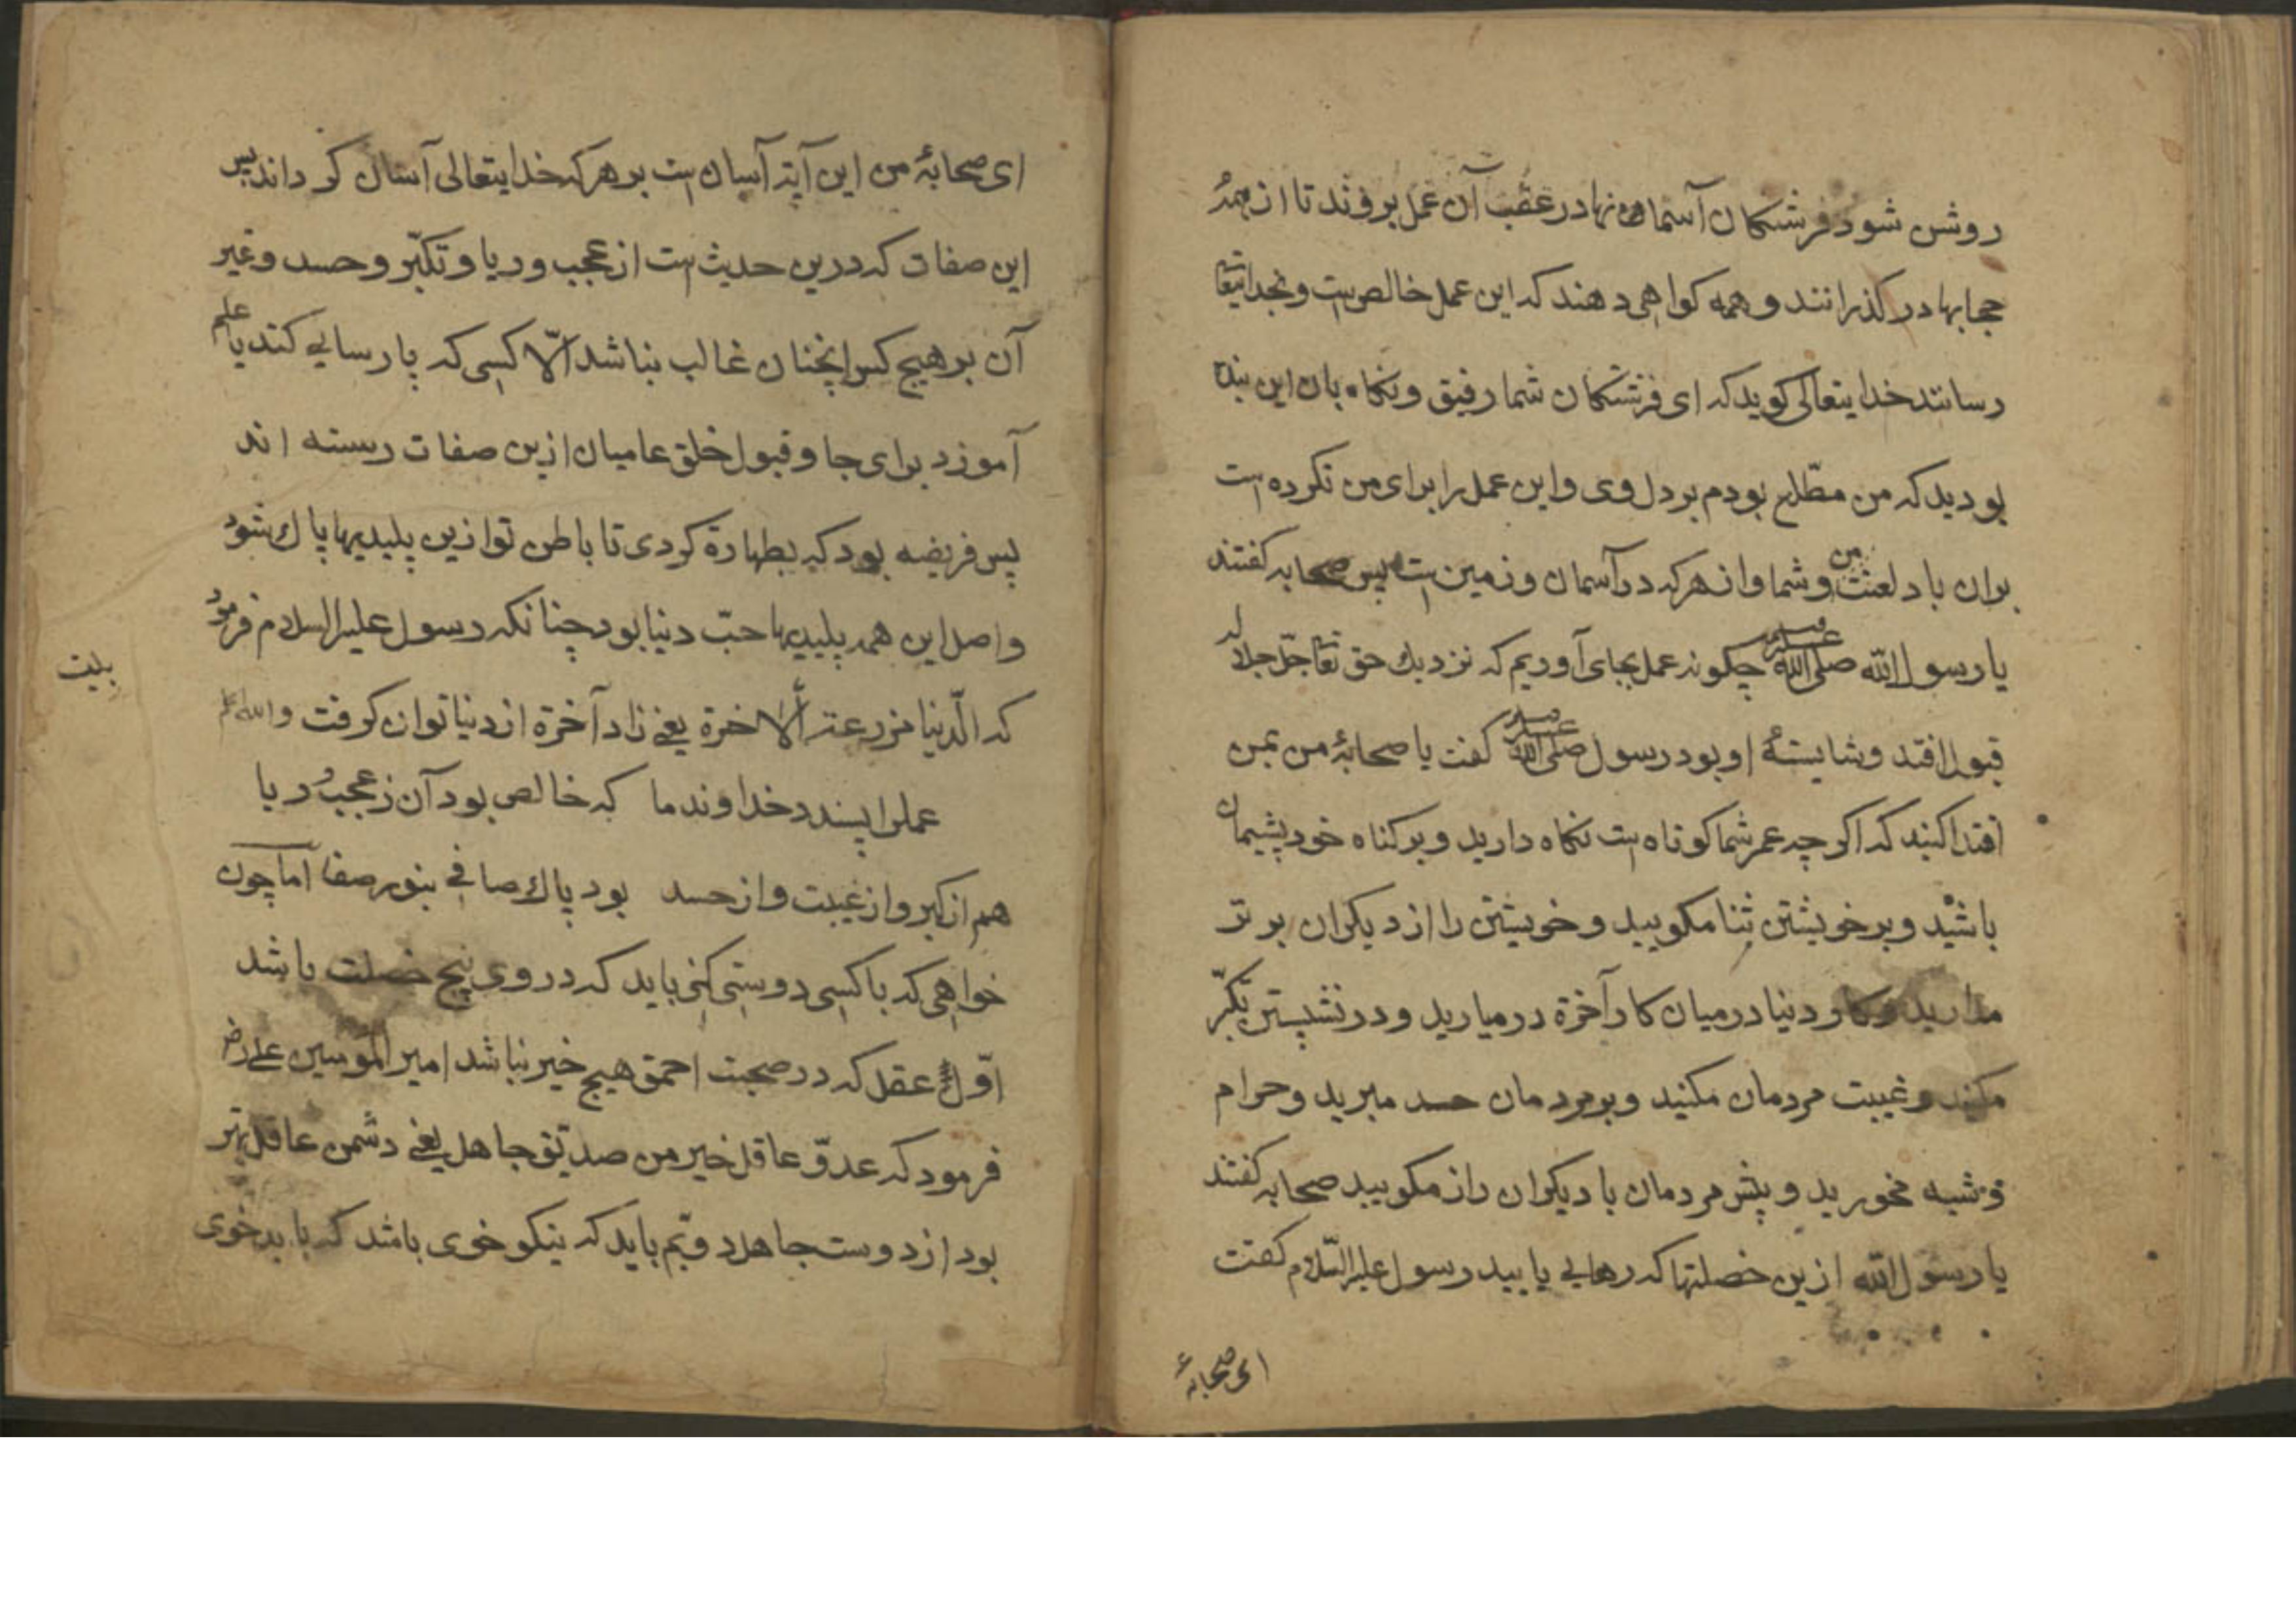 روشن شود فرشتکان آسمانها در عقب آن عمل بروند تا از همهٔ
حجابها در کذرانند و همه کواهی دهند که این عمل خالص است و بخدایتعا
رسانند خدایتعالی کوید که ای فرشتکان شما رفیق و نکاه بان این بنده
بودید که من مطّلع بودم بر دل وی و این عمل را برای من نکرده است
بران باد لعنت من و شما و از هر که در آسمان و زمین است پس صحابه کفتند
یا رسول الله صلی الله علیه وسلم چکونه عمل بجای آوریم که نزدیك حق تعا جلّ جلاله
قبول افتد و شایستهٔ او بود رسول صلی الله علیه وسلم کفت یا صحابهٔ من بمن
اقتدا کنید که اکر چه عمر شما کوتاه است نکاه دارید و بر کناه خود پشیمان
باشید و بر خویشتن ثنا مکویید و خویشتن را از دیکران برتر
مدارید و کار دنیا در میان کار آخرة در میارید و در نشستن تکبّر
مکنید و غیبت مردمان مکنید و بر مردمان حسد مبرید و حرام
و شبه مخورید و پیش مردمان با دیکران راز مکویید صحابه کفتند
یا رسول الله ازین خصلتها که رهایی یابید رسول علیه السّلام کفت
ای صحابهٔ
ای صحابهٔ من این آیة آسان است بر هر که خدایتعالی آسان کرداند پس
این صفات که درین حدیث است از عجب و ریا و تکبّر و حسد و غیر
آن بر هیچ کس اینچنان غالب نباشد الّا کسی که پارسایی کند یا علم
آموزد برای جا و قبول خلق عامیان ازین صفات رسته اند
پس فریضه بود که بطهارة کردی تا باطن تو ازین پلیدیها پاك شود
و اصل این همه پلیدیها حبّ دنیا بود چنانکه رسول علیه السلام فرمود
که الدّنیا مزرعة الاخرة یعنی زاد آخرة از دنیا توان کرفت والله اعلم
بیت
عملی را پسندد خداوند ما که خالص بود آن ز عجب و ریا
هم از کبر و از غیبت و از حسد بود پاك صافی بنور صفا اما چون
خواهی که با کسی دوستی کنی باید که در وی پنج خصلت باشد
اوّل عقل که در صحبت احمق هیچ خیر نباشد امیر المومنین علی رض
فرمود که عدوّ عاقل خیر من صدیق جاهل یعنی دشمن عاقل بهتر
بود از دوست جاهل دویّم باید که نیکو خوی باشد که با بدخوی